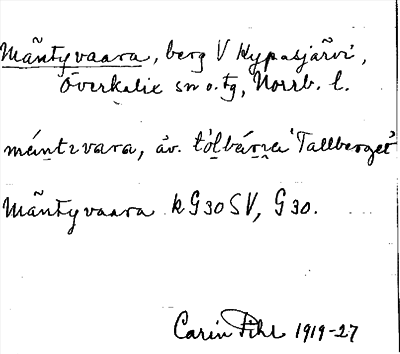 Mäntyvaara, berg V Hypasjärvi,
Överkalix sn o. tg, Norrb. l.
mántzvara, äv. tólbárja 'Tallberget'
Mäntyvaara kG30SV, G30.
Carin Pihl 1919-27